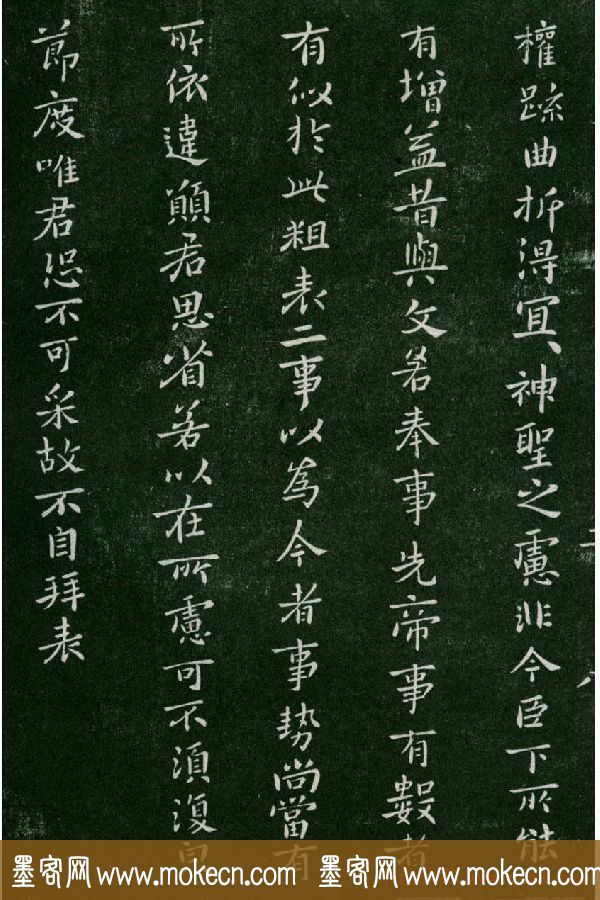 權疏曲折得宜神聖之慮非今臣下所能
有增益昔與文若奉事先帝事有數者
有似於此粗表二事以為今者事勢尚當有
所依違願君思省若以在所慮可不須復皃
節度唯君恐不可采故不自拜表
墨客网 www.mokecn.com 墨客网 www.mokecn.com